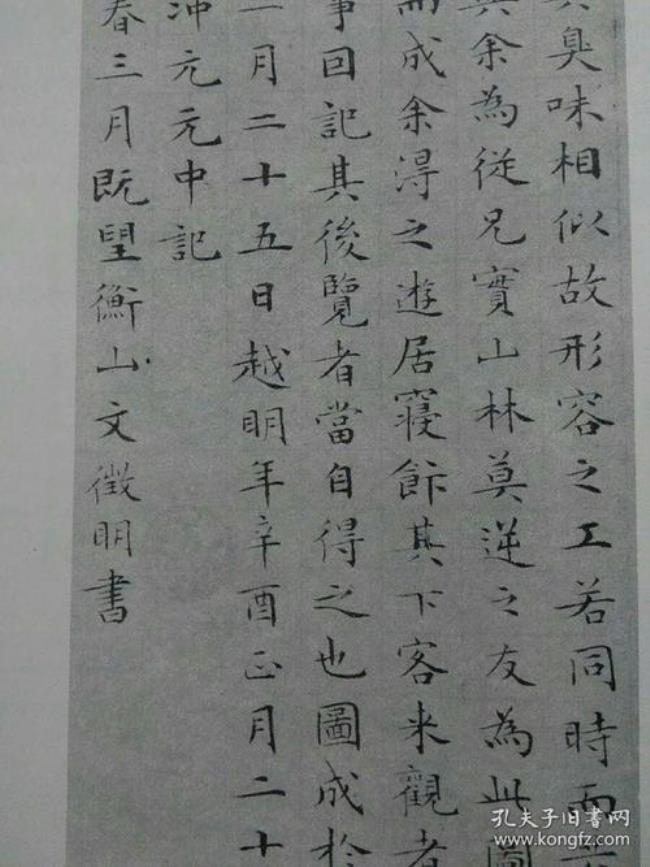 臭味相似故形容之工若同時而
余為從兄實山林莫逆之友為此圖
而成余得之遊居寢飰其下客来觀者
事回記其後覽者當自得之也圖成於
一月二十五日越明年辛酉正月二十
沖元元中記
春三月既望衡山文徵明書
孔夫子旧书网
kongfz.com